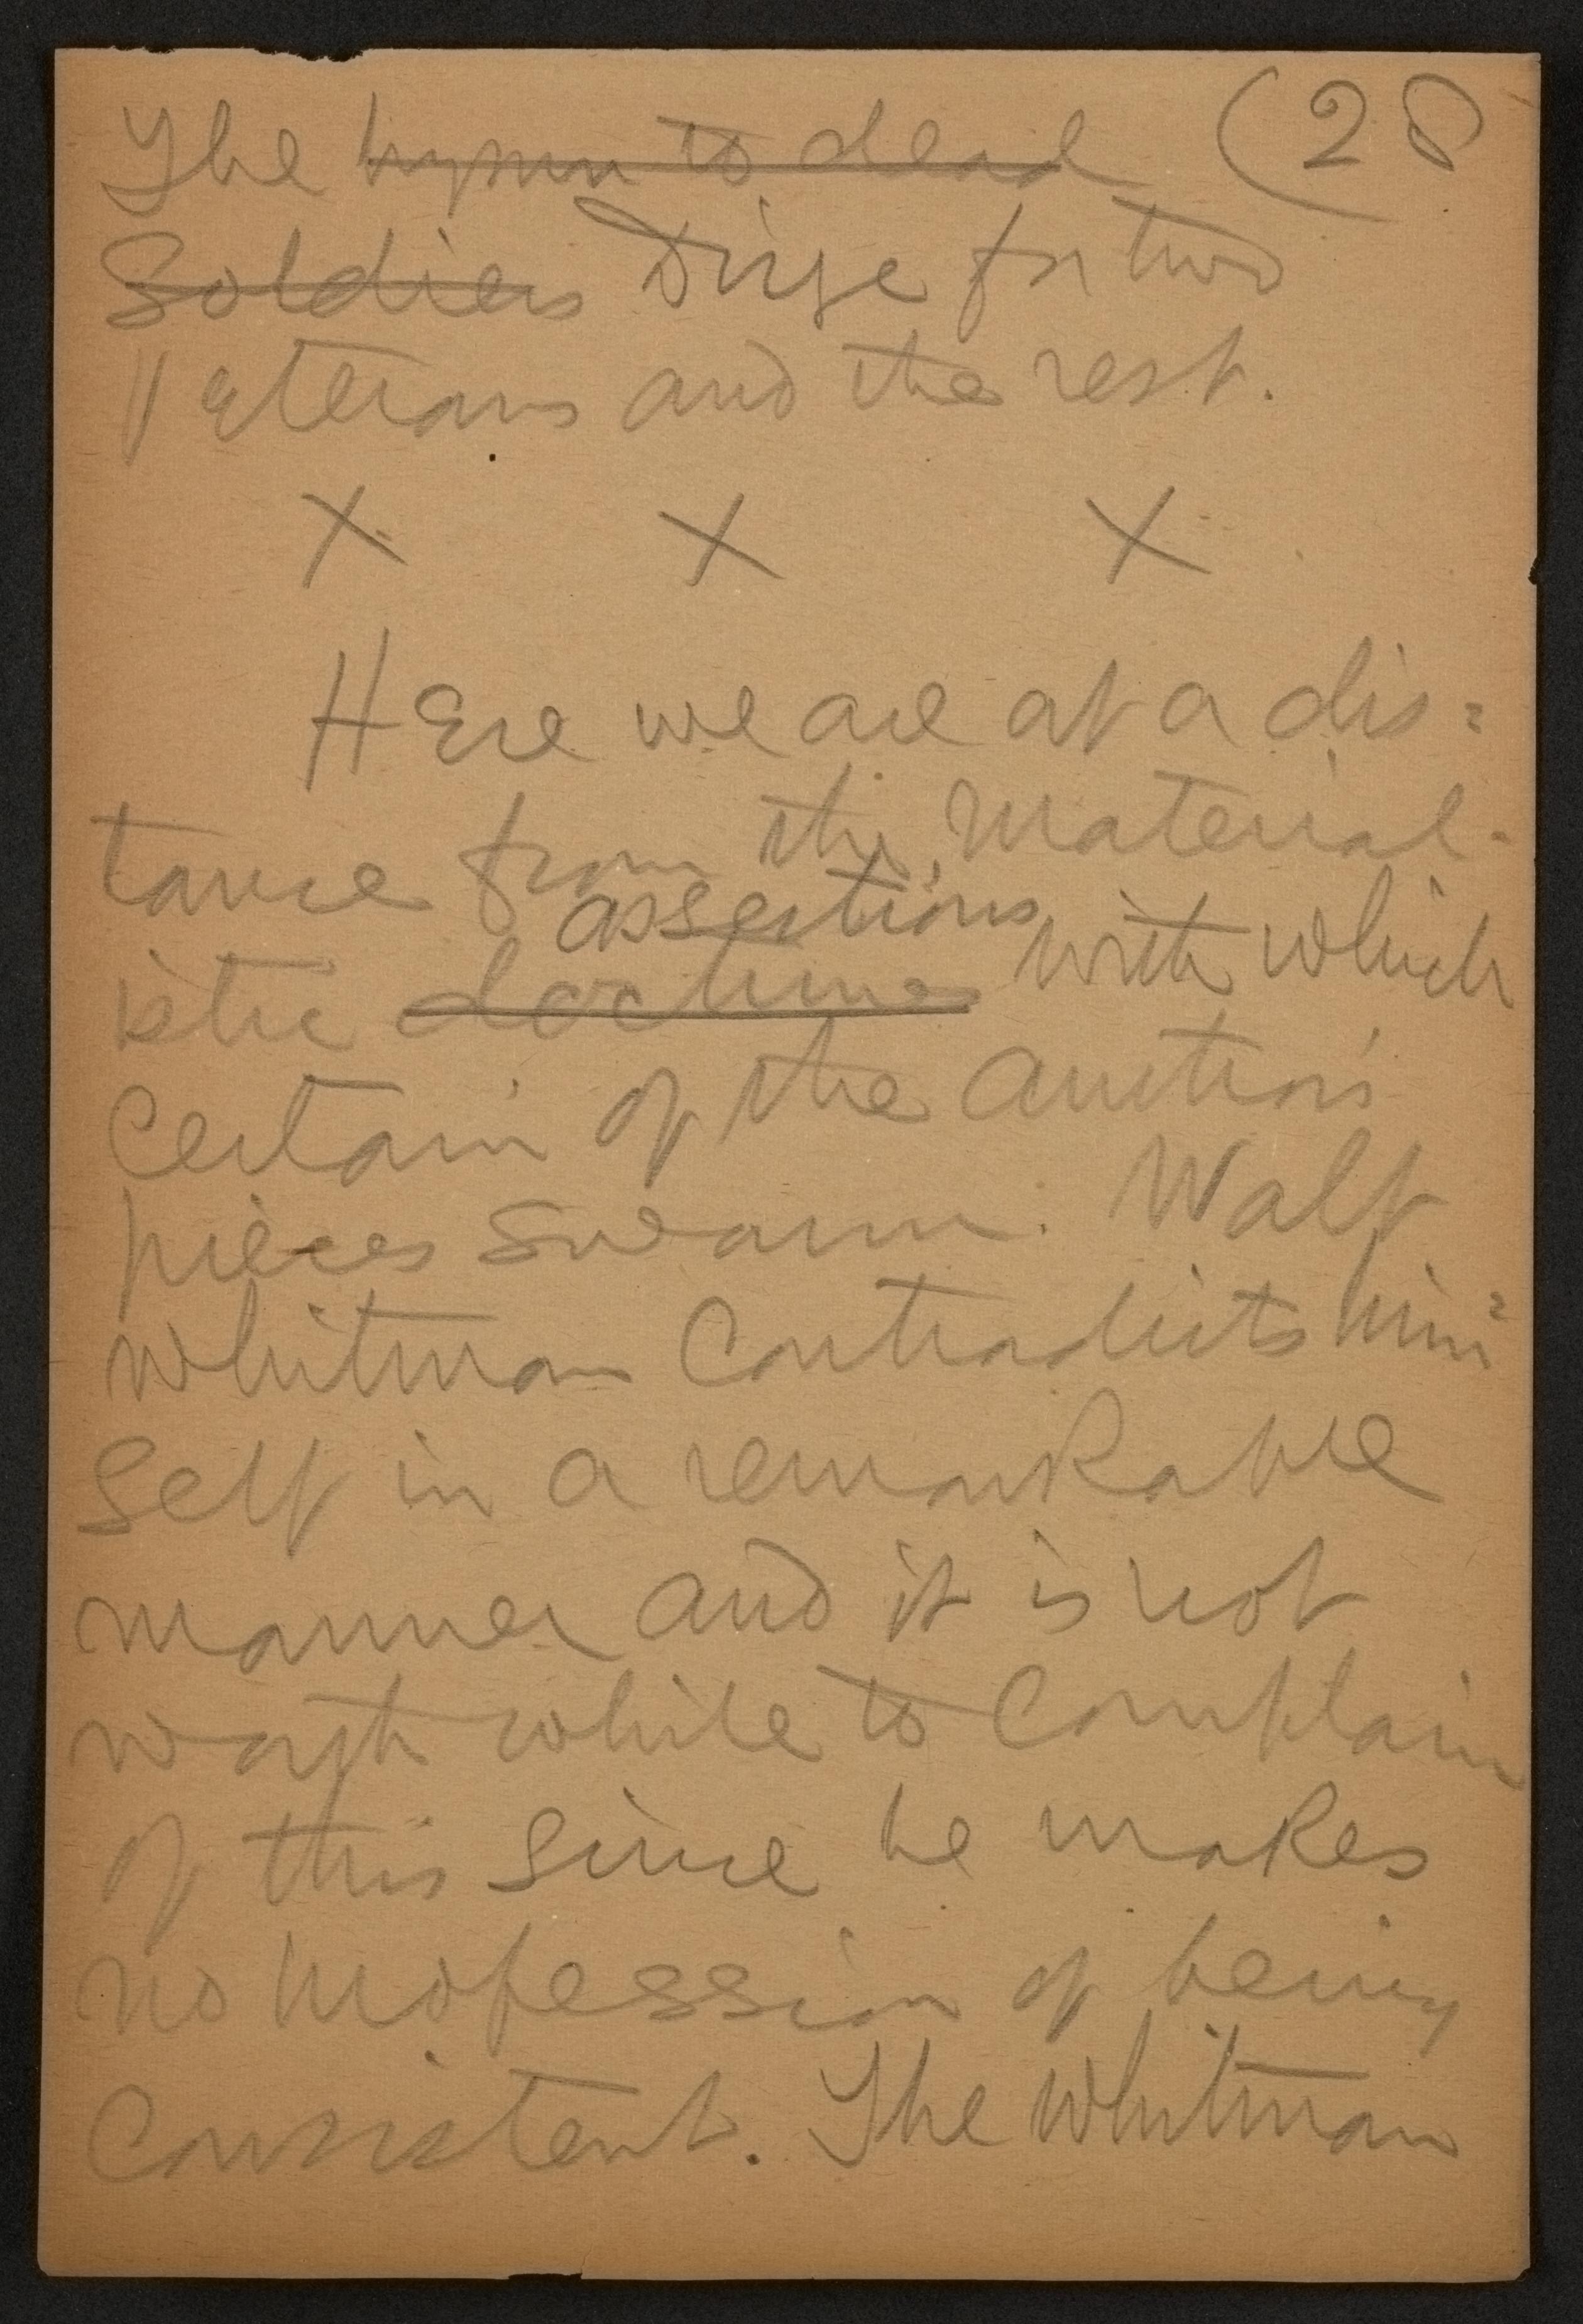 The hymn to dead (28
Soldiers Dirge for two
Veterans and the rest.
X X X
Here we are at a dis=
tance from the material-
assertions
istic doctrines with which
certain of the author's
pieces swarm. Walt
Whitman contradicts him=
self in a remarkable
manner and it is not
worth while to complain
of this since he makes
no profession of being
consistent. The Whitman